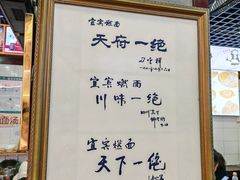 宜宾燃面
天府一绝
宜宾燃面
川味一绝
宜宾燃面
天下一绝